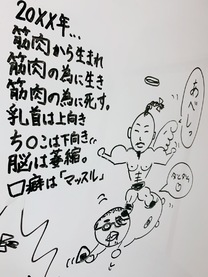 20XX年...
筋肉から生まれ
筋肉の為に生き
筋肉の為に死す。
乳首は上向き
ち〇こは下向き
脳は萎縮。
口癖は「マッスル」
あべしっ